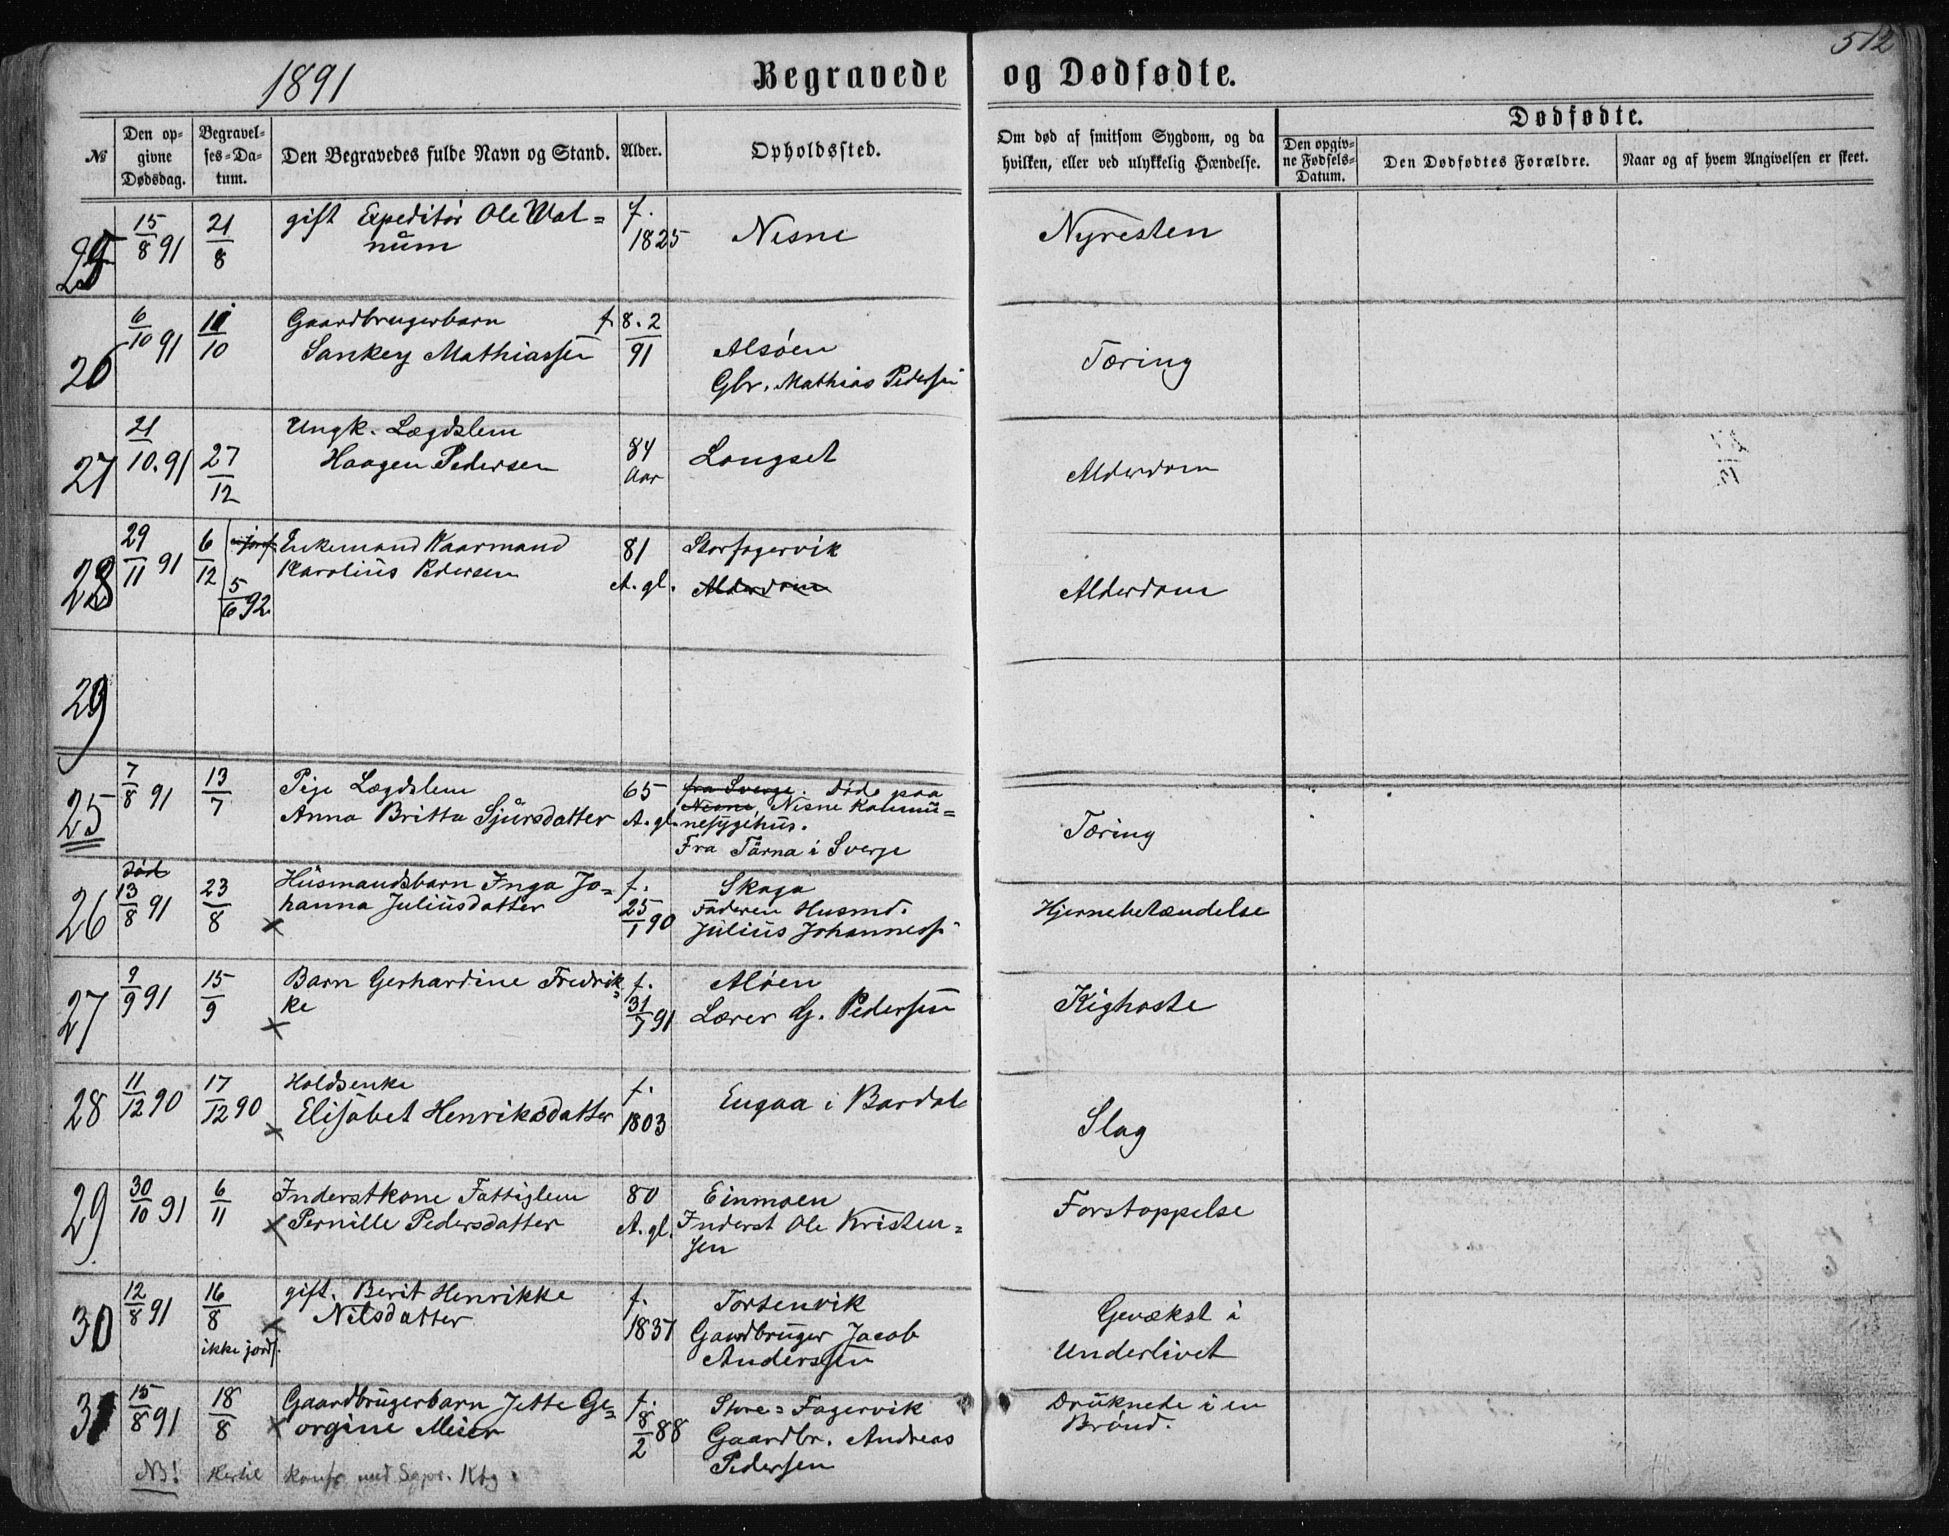 512
1891
Begravede og Dødfødte.
№
Den op-
givne
Dødsdag.
Begravel-
ses-Da-
tum.
Den Begravedes fulde Navn og Stand.
Alder.
Opholdssted.
Om død af smitsom Sygdom, og da
hvilken, eller ved ulykkelig Hændelse.
Dødfødte.
Den opgiv-
ne Fødsels-
Datum.
Den Dødfødtes Forældre.
Naar og af hvem Angivelsen er skeet.
25 15/8 91 21/8 gift Expeditør Ole Wat= f. Nesne Nyresten
num 1825
26 6/10 91 11/10 Gaardbrugerbarn f. 8.2/91 Alsøen Tæring
Sankey Mathiassen
Gbr. Mathias Pedersen
27 21/10.91 27/12 Ungk. Lægdslem 84 Langset Alderdom
Haagen Pedersen Aar
28 29/11 91 6/12 Enkemand Kaarmand 81 Storfagervik Alderdom
Karolius Pedersen A. gl. Alderdom
5/6 92
29
25 7/8 91 13/7 Pige Lægdslem 65 fra Sverge. Døde paa
Anna Britta Sjursdatter A. gl. Nesne, Nesne Kommu= Tæring
nesygehus.
Fra Tärna i Sverge
død
26 13/8 91 23/8 Husmandsbarn Inga Jo= f. Skaga Hjernebetændelse
hanna Juliusdatter 25/1 90 Faderen Husmd.
x Julius Johanness
27 9/9 91 15/9 Barn Gerhardine Fredrik= f. Aløen Kighoste
ke 31/7 91 Lærer G. Pedersen
x
28 11/12 90 17/12 90 Holdsenke f. Engaa i Bardal Slag
x Elisabet Henriksdatter 1803
29 30/10 91 6/11 Inderstkone Fattiglem 80 Einmoen Forstoppelse
x Pernille Pedersdatter A. gl. Inderst Ole Kristen=
sen
30 12/8 91 16/8 gift. Berit Henrikke f. Torsenvik Gevækst i
x Nilsdatter 1837 Gaardbruger Jacob Underlivet
ikke jordf. Anderssen
31 15/8 91 18/8 Gaardbrugerbarn Jette Ge= f. Store=Fagervik Druknede i en
x orgine Meier 8/2 88 Gaardbr. Andreas Brønd.
Pedersen
NB! Hertil konfr. med Sgpr. Kbg